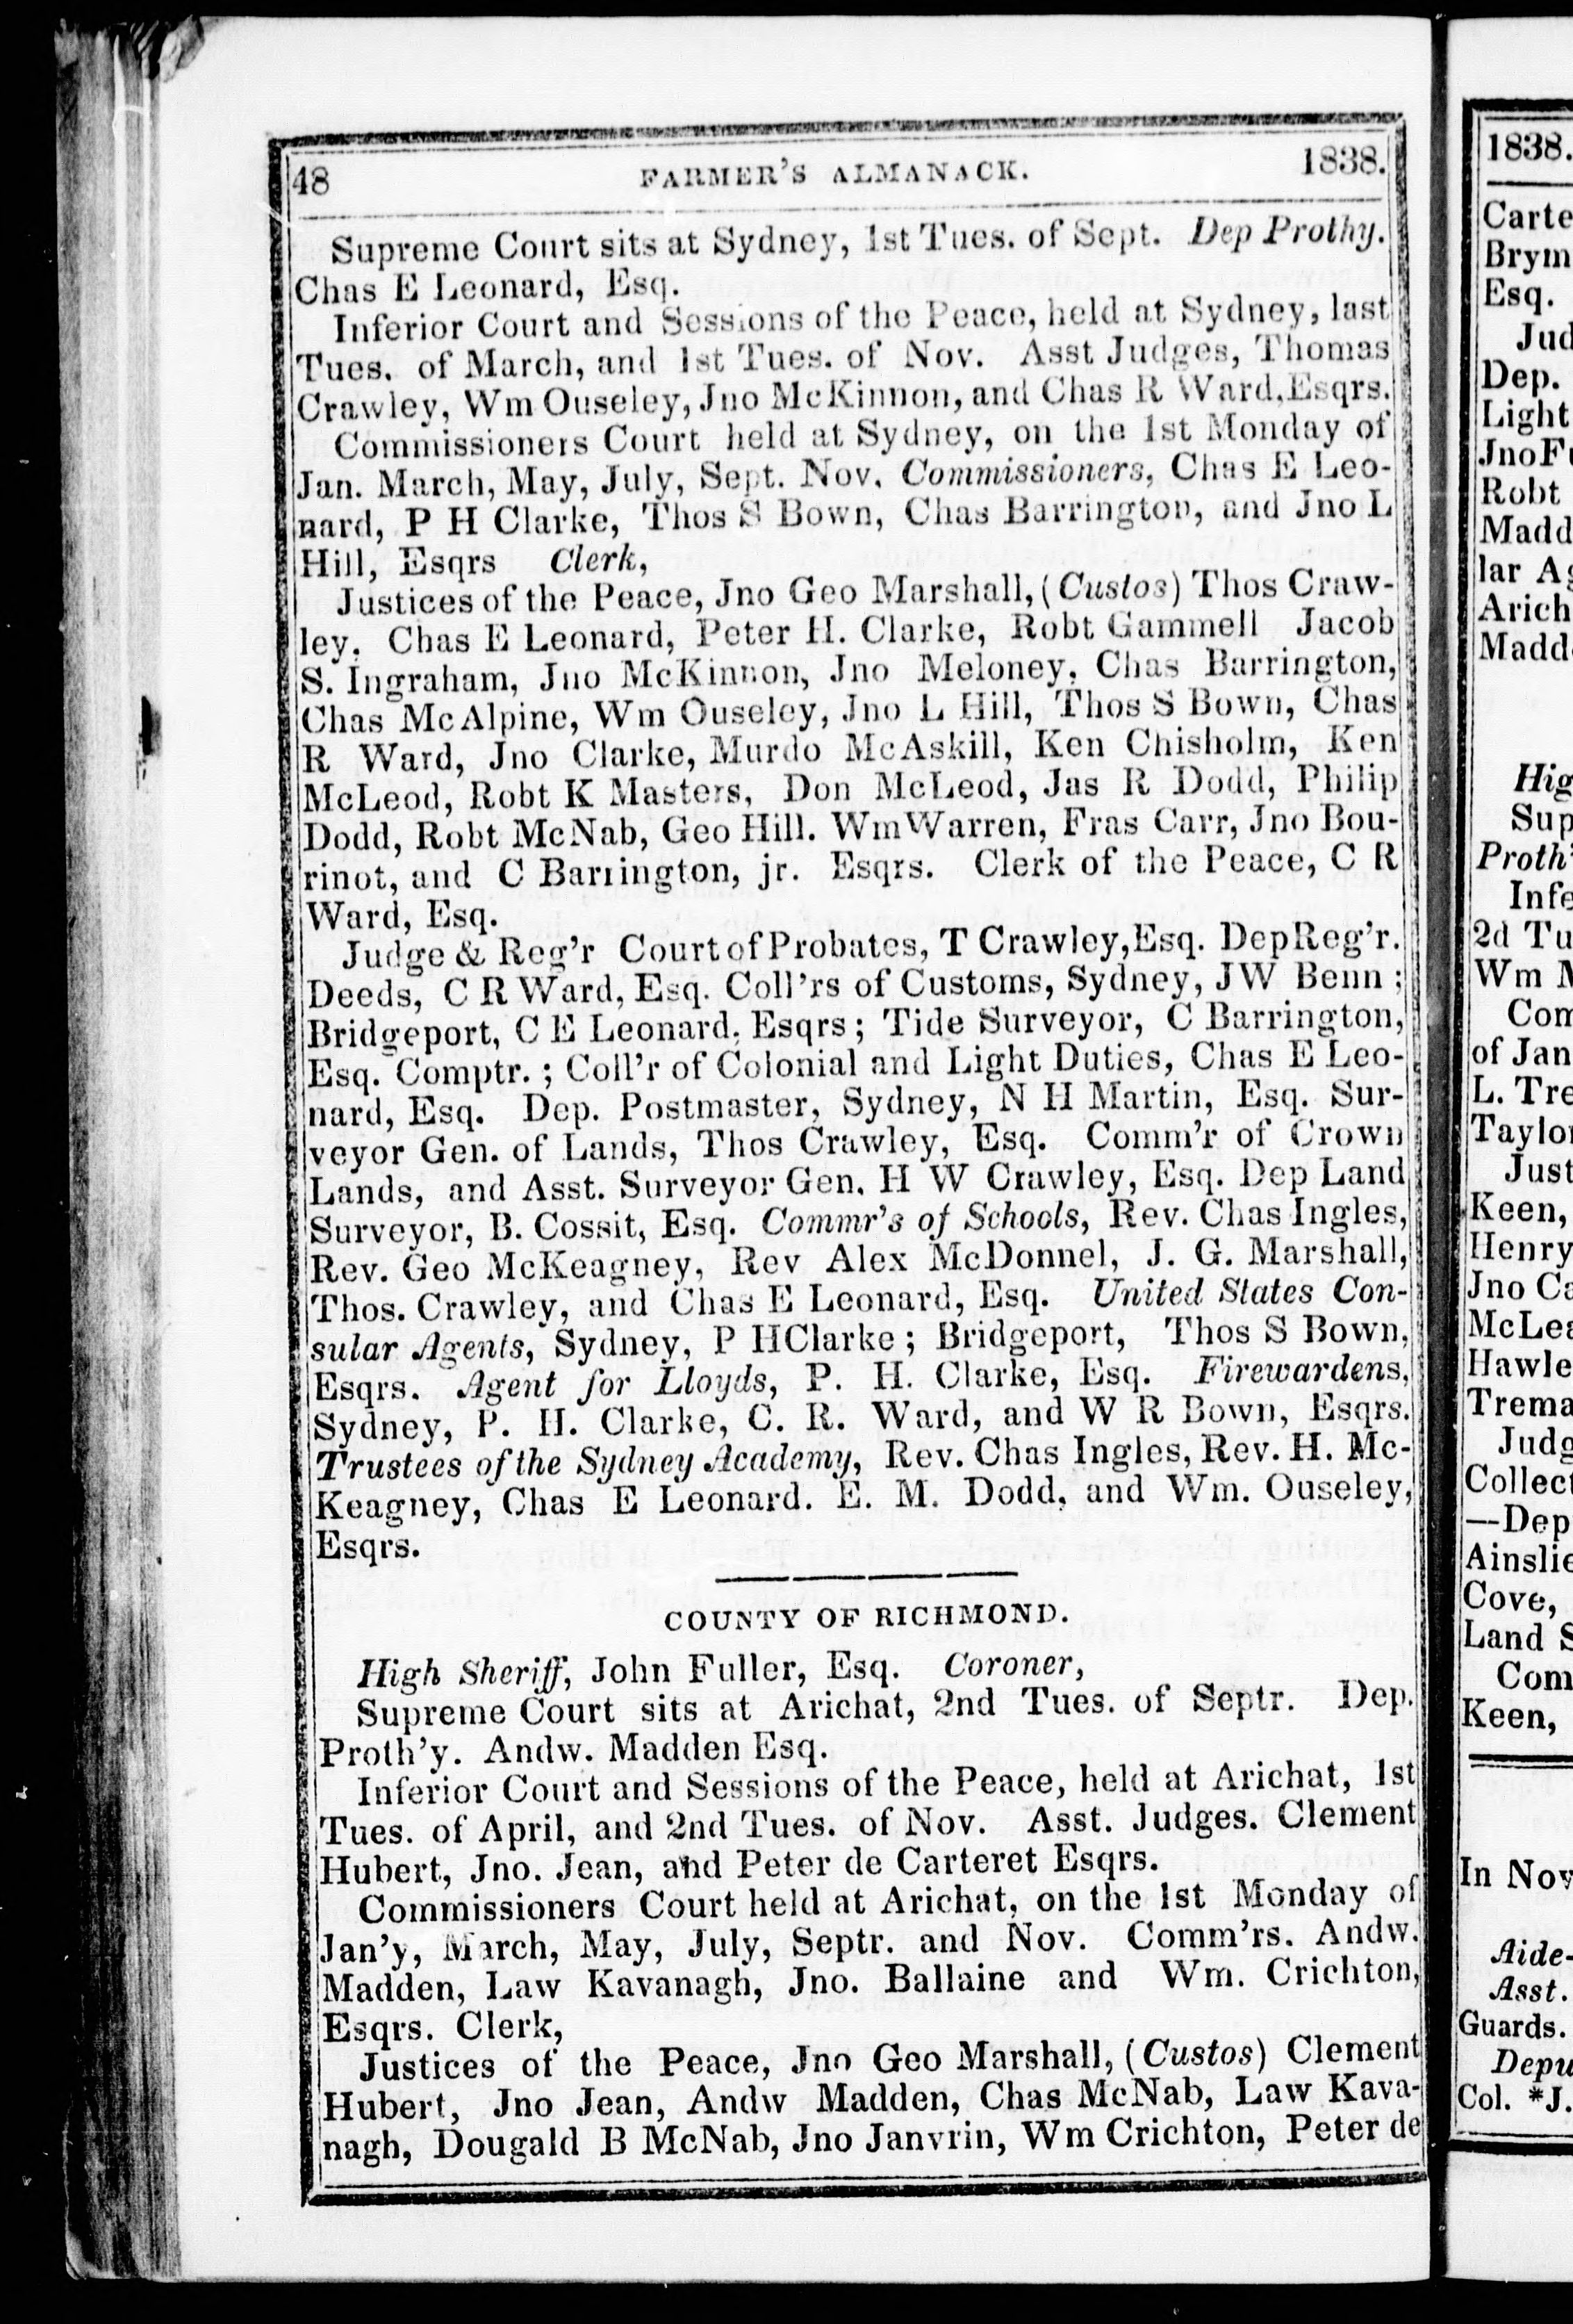 48 FARMER'S ALMANACK. 1838.
Supreme Court sits at Sydney, 1st Tues. of Sept. Dep Prothy.
Chas E Leonard, Esq.
Inferior Court and Sessions of the Peace, held at Sydney, last
Tues. of March, and 1st Tues. of Nov. Asst Judges, Thomas
Crawley, Wm Ouseley, Jno McKinnon, and Chas R Ward, Esqrs.
Commissioners Court held at Sydney, on the 1st Monday of
Jan. March, May, July, Sept. Nov. Commissioners, Chas E Leo-
nard, P H Clarke, Thos S Bown, Chas Barrington, and Jno L
Hill, Esqrs Clerk,
Justices of the Peace, Jno Geo Marshall, (Custos) Thos Craw-
ley, Chas E Leonard, Peter H. Clarke, Robt Gammell Jacob
S. Ingraham, Jno McKinnon, Jno Meloney, Chas Barrington,
Chas McAlpine, Wm Ouseley, Jno L Hill, Thos S Bown, Chas
R Ward, Jno Clarke, Murdo McAskill, Ken Chisholm, Ken
McLeod, Robt K Masters, Don McLeod, Jas R Dodd, Philip
Dodd, Robt McNab, Geo Hill. Wm Warren, Fras Carr, Jno Bou-
rinot, and C Barrington, jr. Esqrs. Clerk of the Peace, C R
Ward, Esq.
Judge & Reg'r Court of Probates, T Crawley, Esq. Dep Reg'r.
Deeds, C R Ward, Esq. Coll'rs of Customs, Sydney, J W Benn;
Bridgeport, C E Leonard, Esqrs; Tide Surveyor, C Barrington,
Esq. Comptr.; Coll'r of Colonial and Light Duties, Chas E Leo-
nard, Esq. Dep. Postmaster, Sydney, N H Martin, Esq. Sur-
veyor Gen. of Lands, Thos Crawley, Esq. Comm'r of Crown
Lands, and Asst. Surveyor Gen. H W Crawley, Esq. Dep Land
Surveyor, B. Cossit, Esq. Commr's of Schools, Rev. Chas Ingles,
Rev. Geo McKeagney, Rev Alex McDonnel, J. G. Marshall,
Thos. Crawley, and Chas E Leonard, Esq. United States Con-
sular Agents, Sydney, P H Clarke; Bridgeport, Thos S Bown,
Esqrs. Agent for Lloyds, P. H. Clarke, Esq. Firewardens,
Sydney, P. H. Clarke, C. R. Ward, and W R Bown, Esqrs.
Trustees of the Sydney Academy, Rev. Chas Ingles, Rev. H. Mc-
Keagney, Chas E Leonard. E. M. Dodd, and Wm. Ouseley,
Esqrs.
COUNTY OF RICHMOND.
High Sheriff, John Fuller, Esq. Coroner,
Supreme Court sits at Arichat, 2nd Tues. of Septr. Dep.
Proth'y. Andw. Madden Esq.
Inferior Court and Sessions of the Peace, held at Arichat, 1st
Tues. of April, and 2nd Tues. of Nov. Asst. Judges. Clement
Hubert, Jno. Jean, and Peter de Carteret Esqrs.
Commissioners Court held at Arichat, on the 1st Monday of
Jan'y, March, May, July, Septr. and Nov. Comm'rs. Andw.
Madden, Law Kavanagh, Jno. Ballaine and Wm. Crichton,
Esqrs. Clerk,
Justices of the Peace, Jno Geo Marshall, (Custos) Clement
Hubert, Jno Jean, Andw Madden, Chas McNab, Law Kava-
nagh, Dougald B McNab, Jno Janvrin, Wm Crichton, Peter de
1838.
Carte
Brym
Esq.
Jud
Dep.
Light
Jno F
Robt
Madd
lar Ag
Arich
Madd
Hig
Sup
Proth'
Infe
2d Tu
Wm M
Com
of Jan
L. Tre
Taylor
Just
Keen,
Henry
Jno Ca
McLea
Hawle
Trema
Judg
Collect
—Dep
Ainslie
Cove,
Land S
Com
Keen,
In Nov
Aide-
Asst.
Guards.
Depu
Col. *J.